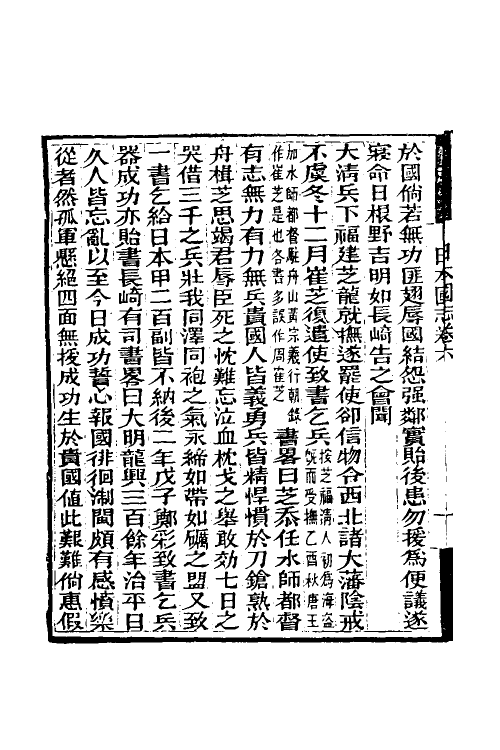 日本國志卷六
於國倘若無功匪翅辱國結怨强鄰實貽後患勿援爲便議遂
寢命日根野吉明如長崎告之會聞
大淸兵下福建芝龍就撫遂罷使卻信物令西北諸大藩陰戒
不虞冬十二月崔芝復遣使致書乞兵按芝福淸人初爲海盜旣而受撫乙酉秋唐王
加水師都督駐舟山黃宗羲行朝錄作崔芝是也各書多誤作周崔芝書畧曰芝忝任水師都督
有志無力有力無兵貴國人皆義勇兵皆精悍慣於刀鎗熟於
舟楫芝思竭君辱臣死之忱難忘泣血枕戈之舉敢効七日之
哭借三千之兵壯我同澤同袍之氣永締如帶如礪之盟又致
一書乞給日本甲二百副皆不納後二年戊子鄭彩致書乞兵
器成功亦貽書長崎有司書畧曰大明龍興三百餘年治平日
久人皆忘亂以至今日成功誓心報國徘徊淛閩頗有感憤樂
從者然孤軍懸絕四面無援成功生於貴國值此艱難倘惠假